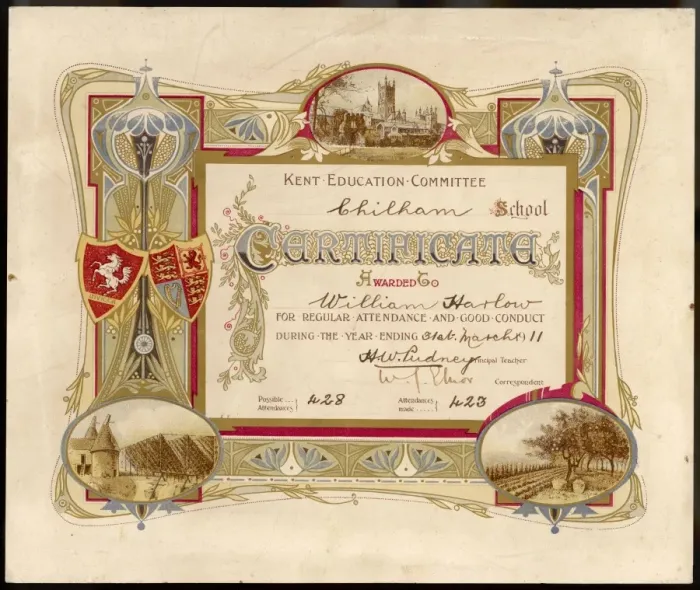 KENT·EDUCATION·COMMITTEE
Chilham School
CERTIFICATE
AWARDED TO
William Harlow
FOR REGULAR ATTENDANCE AND GOOD CONDUCT
DURING·THE·YEAR·ENDING 31st March 11
H.W. Pudney Principal Teacher
Correspondent
Possible Attendances 428 Attendances made ..... 423